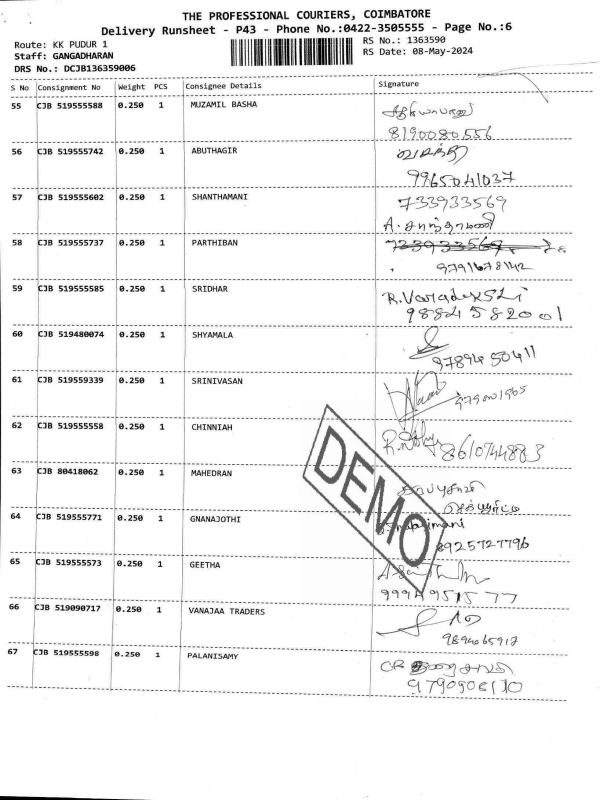 THE PROFESSIONAL COURIERS, COIMBATORE
Delivery Runsheet - P43 - Phone No.:0422-3505555 - Page No.:6
Route: KK PUDUR 1
RS No.: 1363590
Staff: GANGADHARAN
RS Date: 08-May-2024
DRS No.: DCJB136359006
S No Consignment No Weight PCS Consignee Details Signature
55 CJB 519555588 0.250 1 MUZAMIL BASHA
8190080556
56 CJB 519555742 0.250 1 ABUTHAGIR
9965041037
57 CJB 519555602 0.250 1 SHANTHAMANI 733933569
A. சாந்தாமணி
58 CJB 519555737 0.250 1 PARTHIBAN 733933569
9791678142
59 CJB 519555585 0.250 1 SRIDHAR
9884582001
60 CJB 519480074 0.250 1 SHYAMALA
9789450411
61 CJB 519559339 0.250 1 SRINIVASAN
62 CJB 519555558 0.250 1 CHINNIAH 8610744883
63 CJB 80418062 0.250 1 MAHEDRAN
64 CJB 519555771 0.250 1 GNANAJOTHI
8925727796
65 CJB 519555573 0.250 1 GEETHA
9994951577
66 CJB 519090717 0.250 1 VANAJAA TRADERS
9894065912
67 CJB 519555598 0.250 1 PALANISAMY
9790906110
DEMO